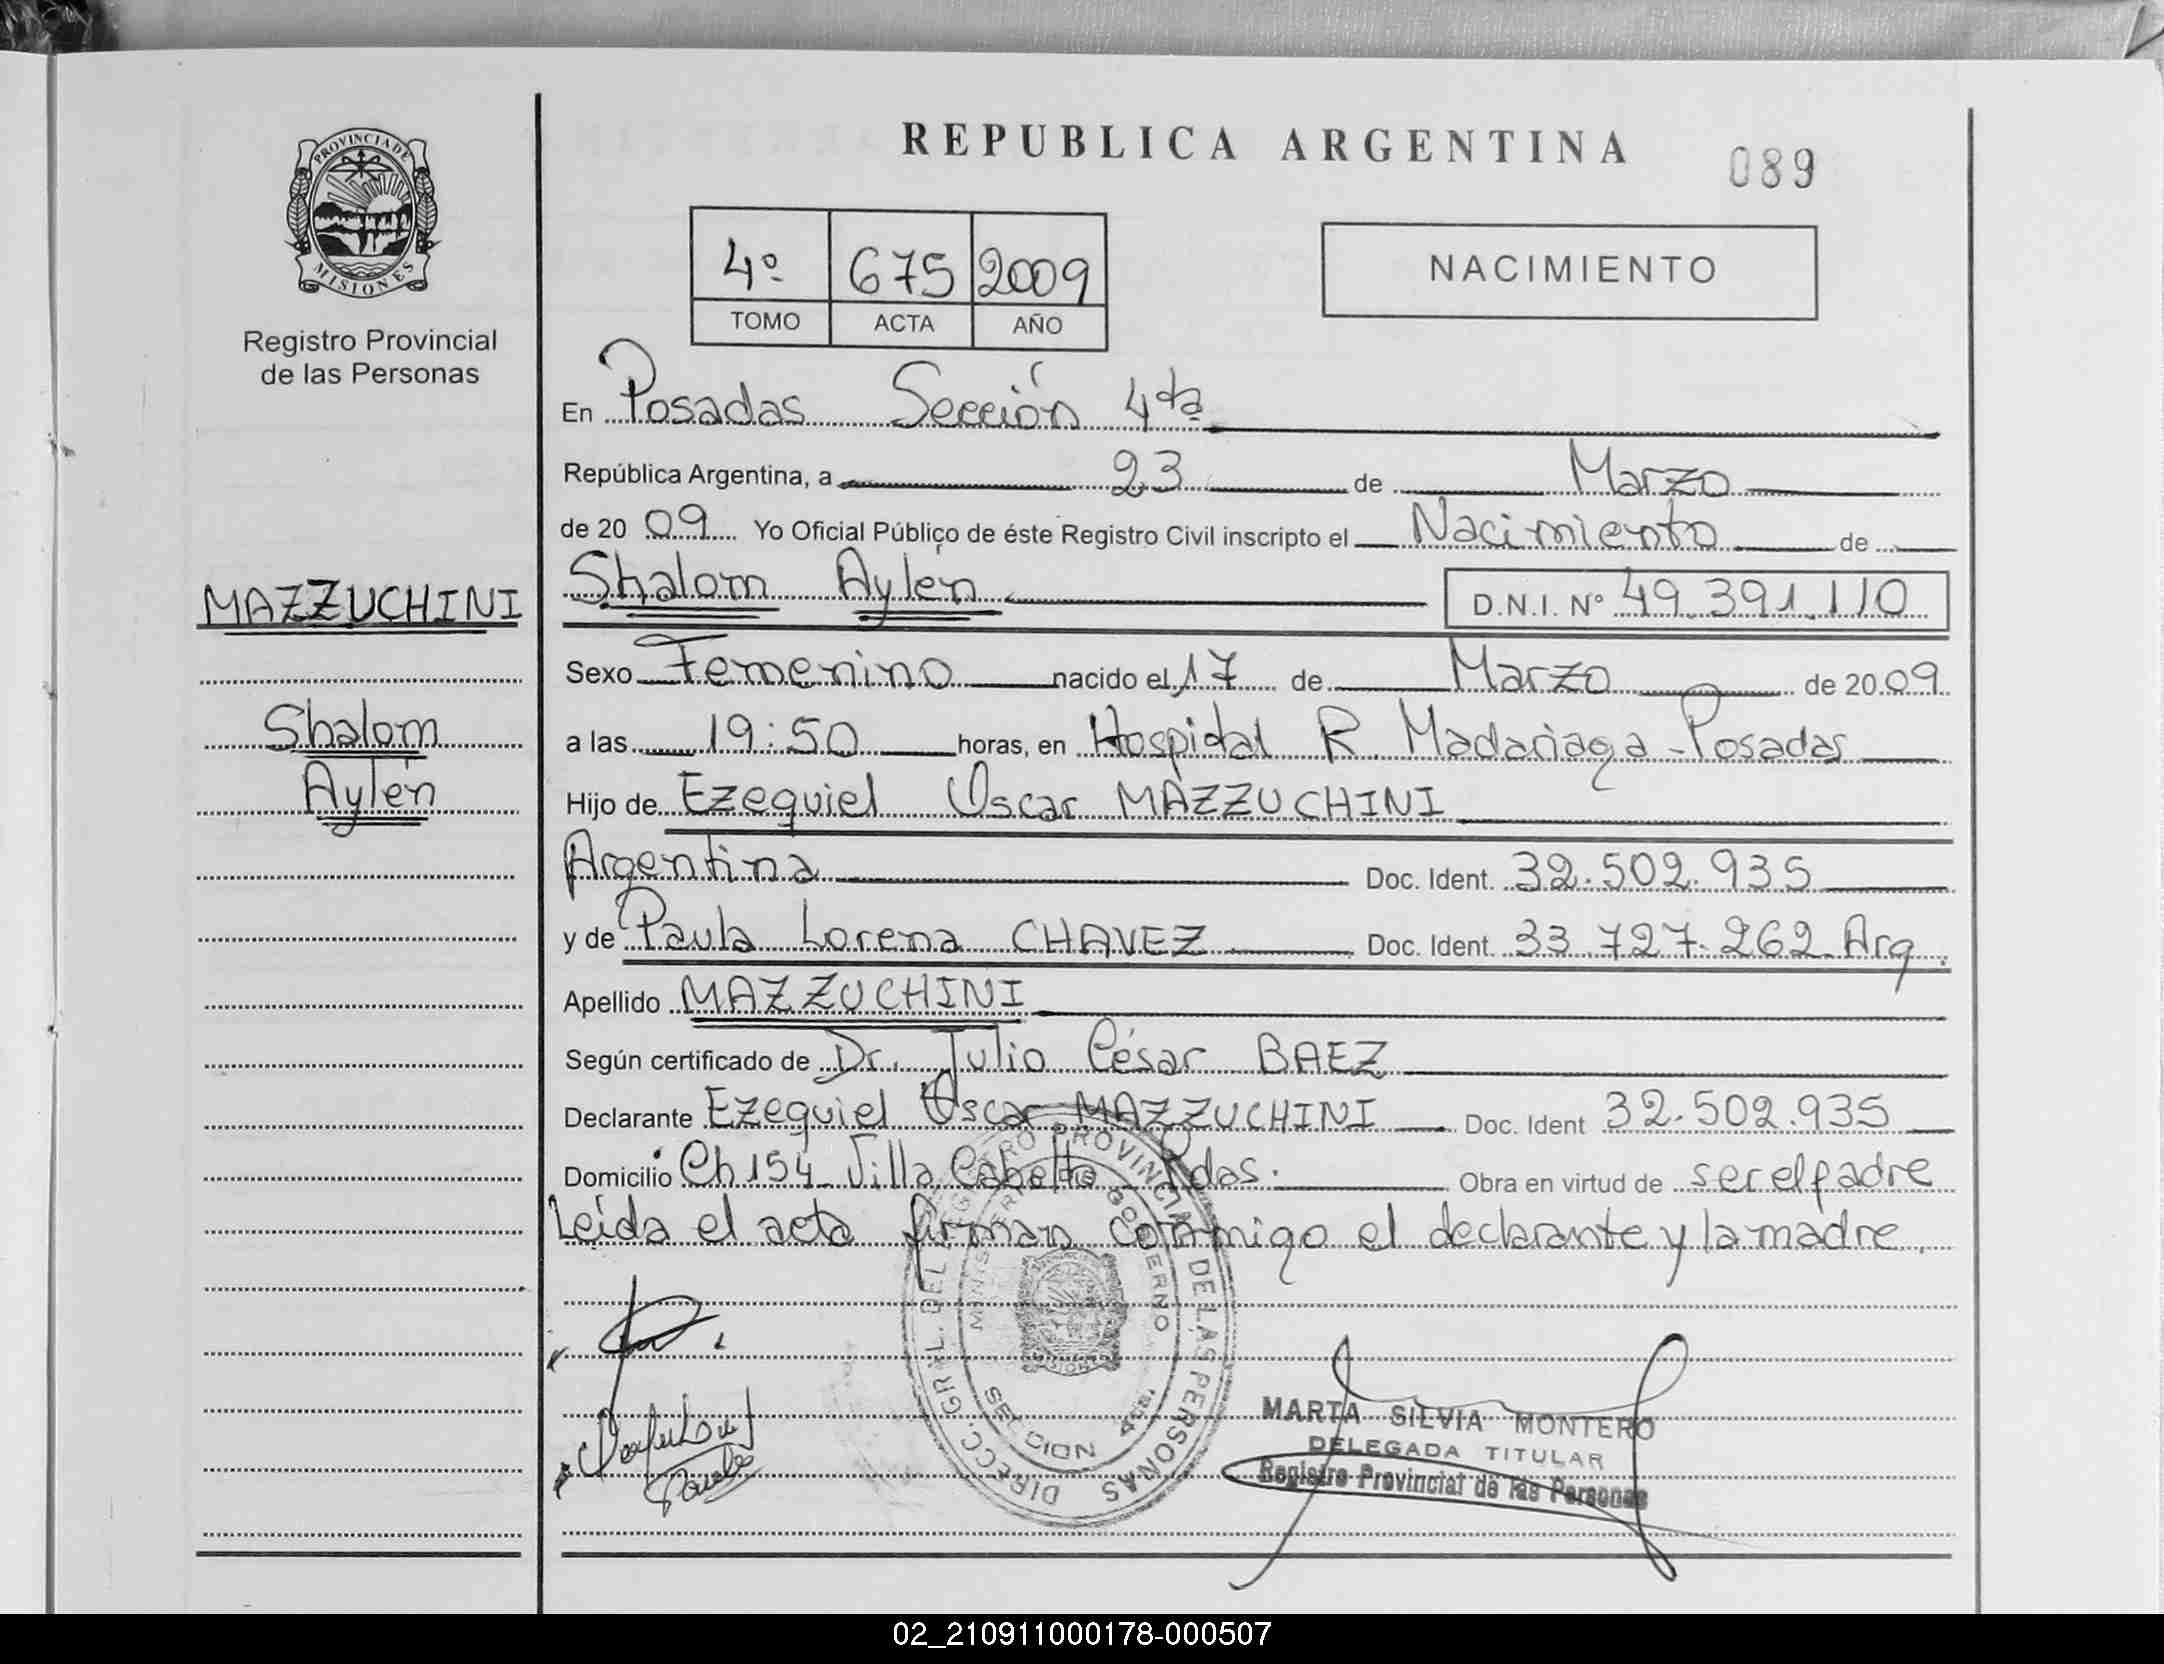 REPUBLICA ARGENTINA
089
PROVINCIA DE
MISIONES
Registro Provincial
de las Personas
4º 675 2009
TOMO ACTA AÑO
NACIMIENTO
En Posadas Sección 4ta
República Argentina, a 23 de Marzo
de 2009 Yo Oficial Público de éste Registro Civil inscripto el Nacimiento de
MAZZUCHINI
Shalom Aylén D.N.I. Nº 49.391.110
Sexo Femenino nacido el 17 de Marzo de 2009
Shalom
a las 19:50 horas, en Hospital R. Madariaga - Posadas
Aylén
Hijo de Ezequiel Oscar MAZZUCHINI
Argentina Doc. Ident. 32.502.935
y de Paula Lorena CHAVEZ Doc. Ident. 33.727.262 Arg.
Apellido MAZZUCHINI
Según certificado de Dr. Julio César BAEZ
Declarante Ezequiel Oscar MAZZUCHINI Doc. Ident 32.502.935
Domicilio Ch 154 Villa Cabello Pdas. Obra en virtud de ser el padre
Leída el acta firman conmigo el declarante y la madre.
DIRECC. GRAL. DEL REGISTRO PROVINCIAL DE LAS PERSONAS
MINISTERIO DE GOBIERNO
MARTA SILVIA MONTERO
DELEGADA TITULAR
Registro Provincial de las Personas
02_210911000178-000507